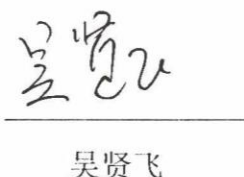 吴贤飞
吴贤飞